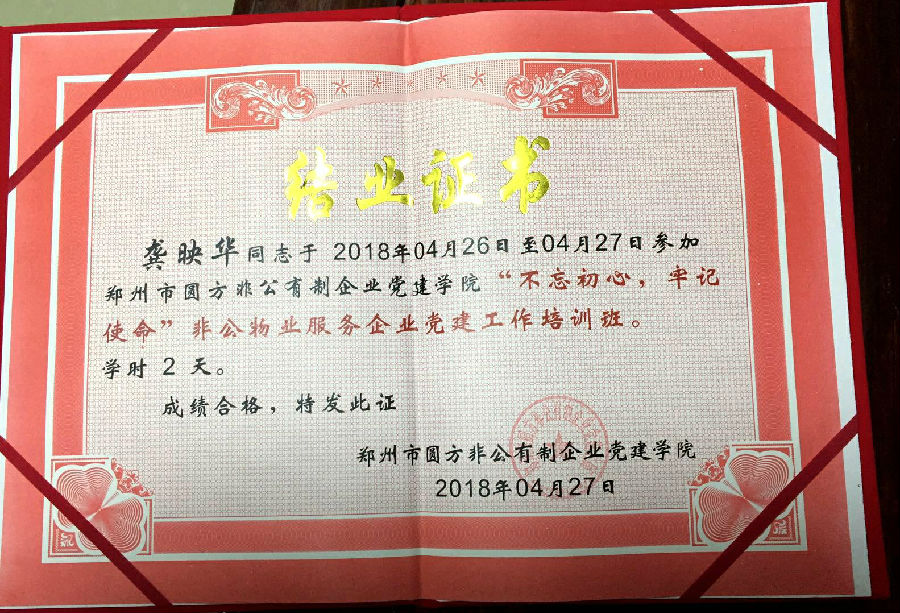 结业证书
龚映华同志于 2018年04月26日至04月27日参加
郑州市圆方非公有制企业党建学院“不忘初心，牢记
使命”非公物业服务企业党建工作培训班。
学时 2 天。
成绩合格，特发此证
郑州市圆方非公有制企业党建学院
2018年04月27日